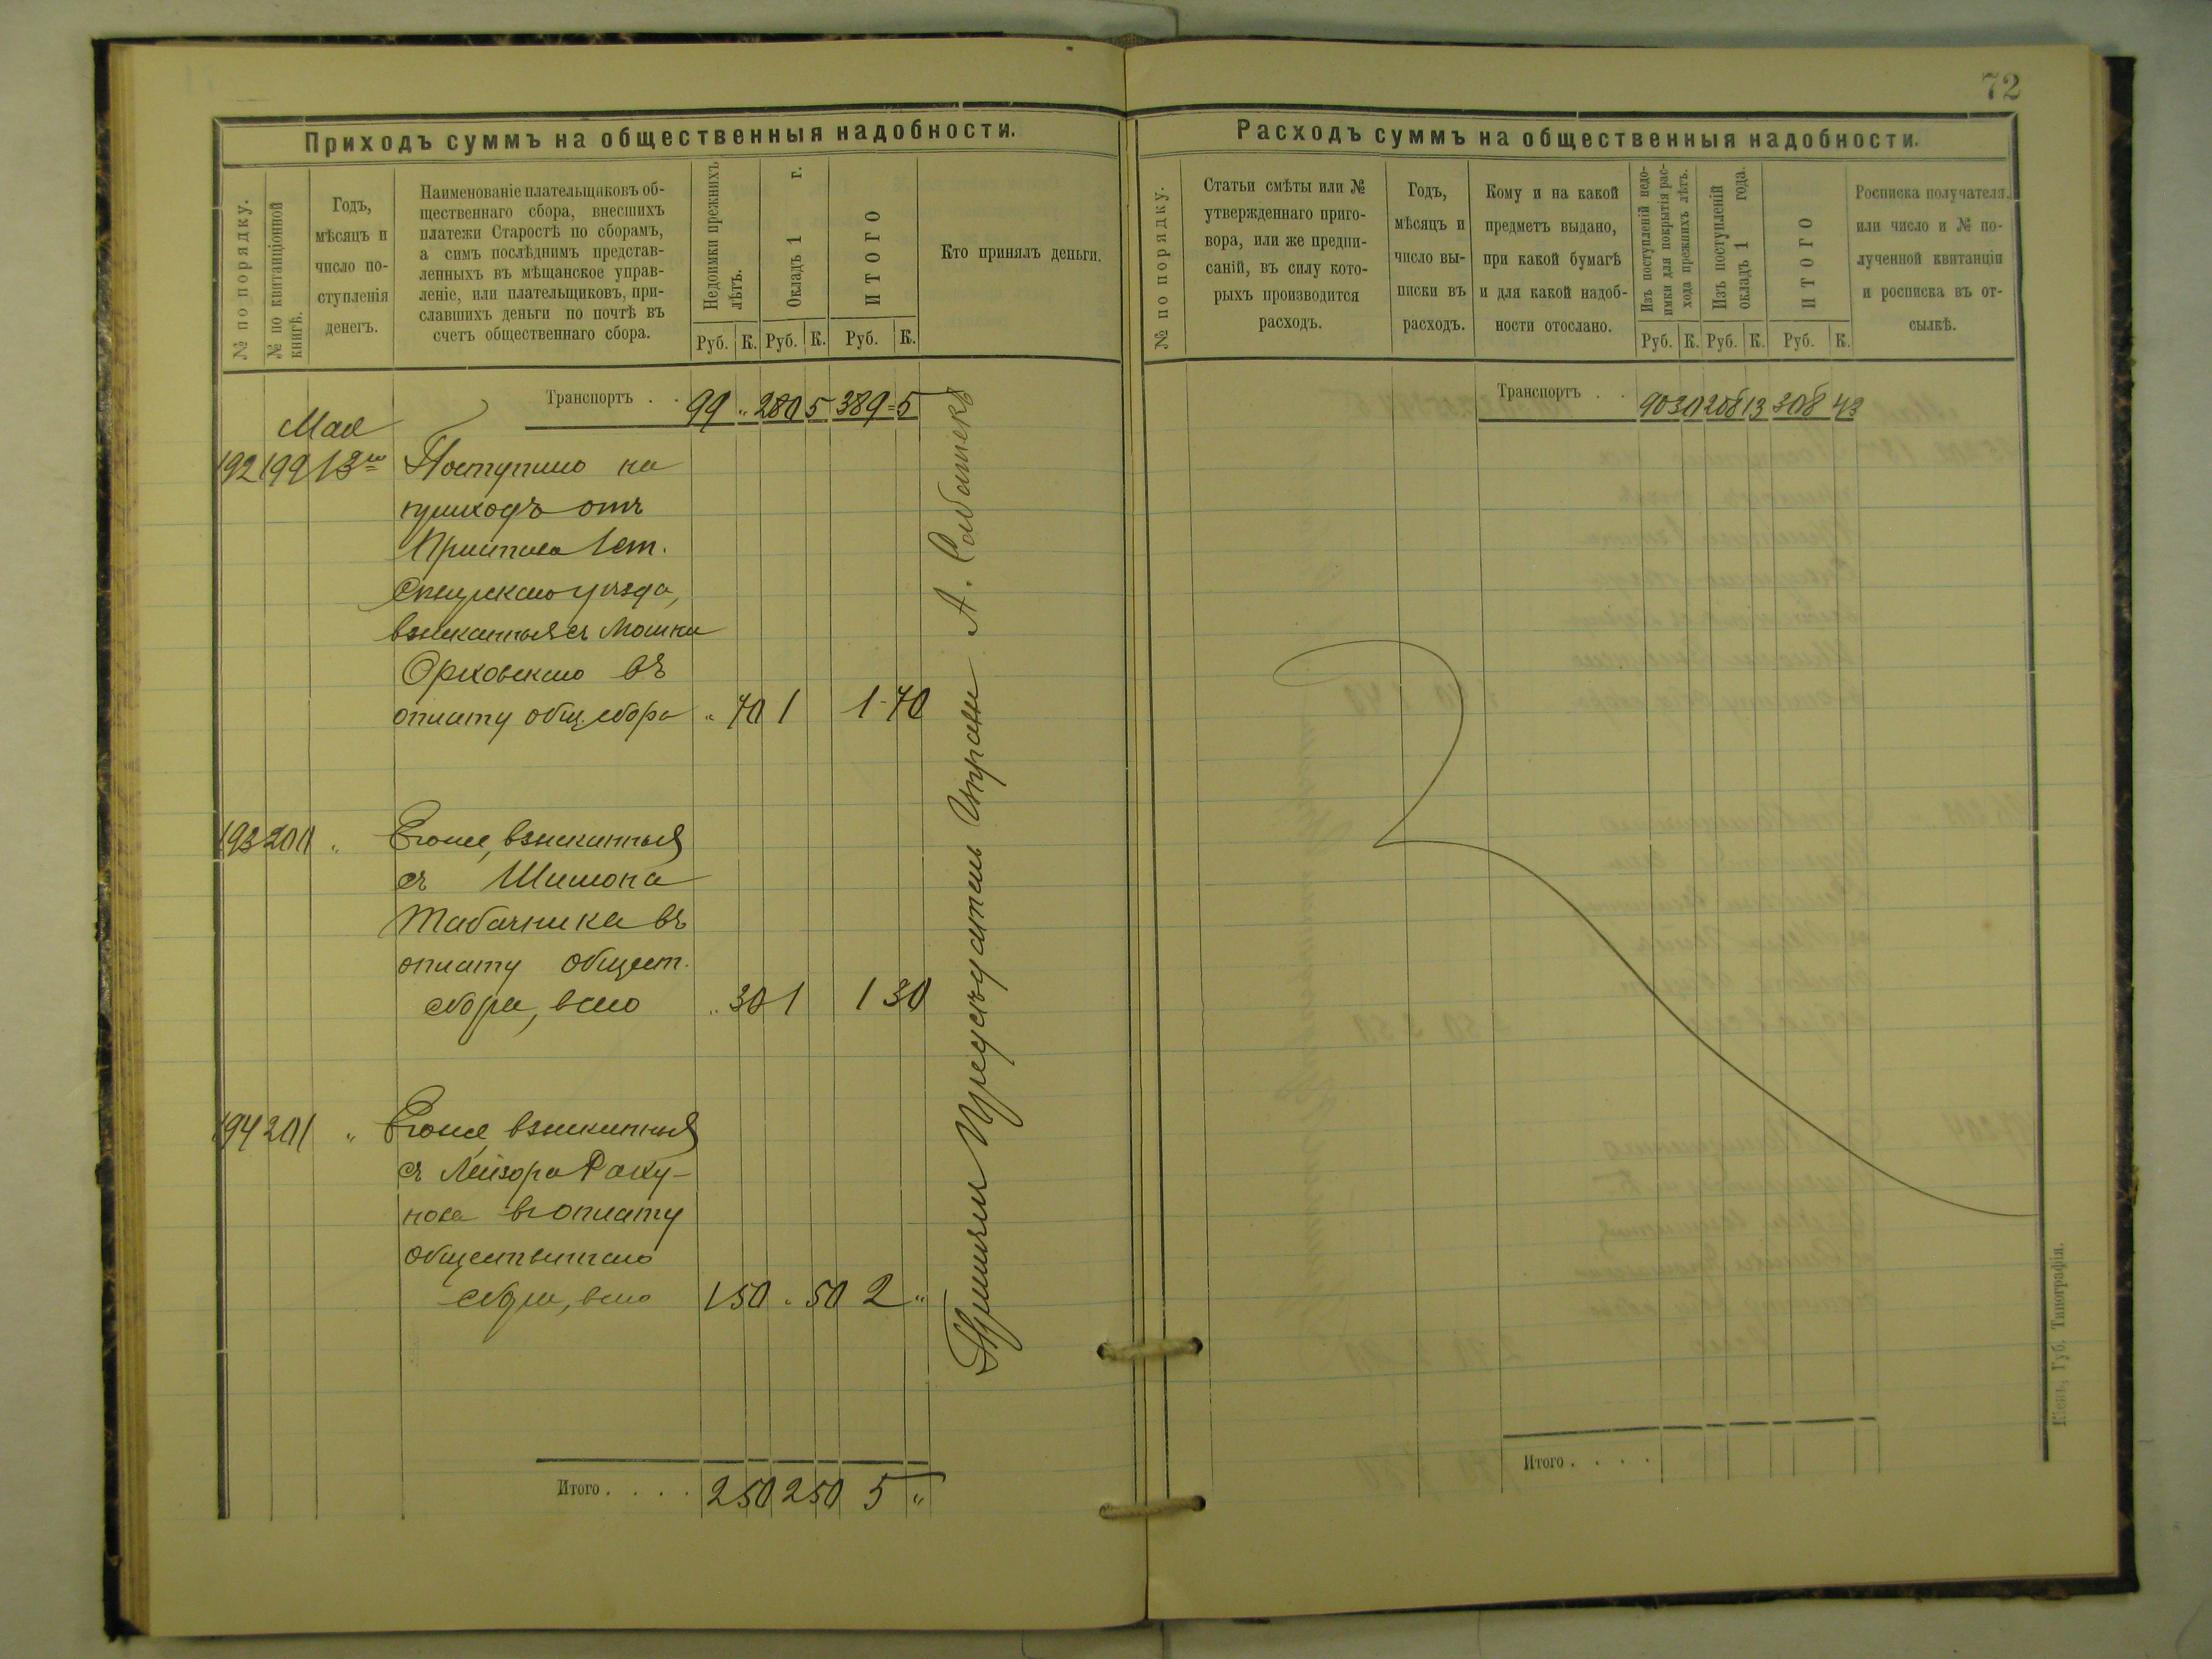 72
Приходъ суммъ на общественныя надобности.
№ по порядку.
№ по квитанціонной
книгѣ.
Годъ,
мѣсяцъ и
число по-
ступленія
денегъ.
Наименованіе плательщиковъ об-
щественнаго сбора, внесшихъ
платежи Старостѣ по сборамъ,
а симъ послѣднимъ представ-
ленныхъ въ мѣщанское управ-
леніе, или плательщиковъ, при-
славшихъ деньги по почтѣ въ
счетъ общественнаго сбора.
Недоимки прежнихъ
лѣтъ.
Окладъ 1 г.
ИТОГО
Кто принялъ деньги.
Руб. К. Руб. К. Руб. К.
Транспортъ . . 99 „ 280 5 389=5
Мая
192 199 13го Поступило на
приходъ отъ
Пристава 1 ст.
Сквирскаго уѣзда,
взысканныя съ Мошки
Ореховскаго въ
оплату общ. сбора „ 70 1 1-70
193 200 „ Его же, взысканныя
съ Шимона
Табачника въ
оплату общест.
сбора, всего „ 30 1 1 30
194 201 „ Его же, взысканныя
съ Лейзора Раку-
нова въ оплату
общественнаго
сбора, всего 1 50 „ 50 2 „
Итого . . . . 2 50 2 50 5 „
Принялъ Предсѣдатель Управы А.
Расходъ суммъ на общественныя надобности.
№ по порядку.
Статьи смѣты или №
утвержденнаго приго-
вора, или же предпи-
саній, въ силу кото-
рыхъ производится
расходъ.
Годъ,
мѣсяцъ и
число вы-
писки въ
расходъ.
Кому и на какой
предметъ выдано,
при какой бумагѣ
и для какой надоб-
ности отослано.
Изъ поступленій недо-
имки для покрытія рас-
хода прежнихъ лѣтъ.
Изъ поступленій
окладъ 1 года.
ИТОГО
Росписка получателя.
или число и № по-
лученной квитанціи
и росписка въ от-
сылкѣ.
Руб. К. Руб. К. Руб. К.
Транспортъ . . 90 30 208 13 308 43
Итого . . . .
Кіевъ, Губ. Типографія.